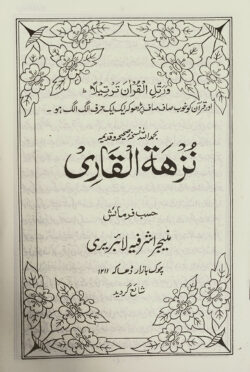 وَرَتِّلِ الْقُرْاٰنَ تَرْتِیْلًا ط
اور قرآن کو خوب صاف صاف پڑھو کہ ایک ایک حرف الگ الگ ہو ۔
بحمد اللہ نسخہ صحیحہ و قدیمہ
نُزْهَةُ الْقَارِى
حسب فرمائش
منیجر اشرفیہ لائبریری
چوک بازار ڈھاکہ ۱۲۱۱
شائع گردید